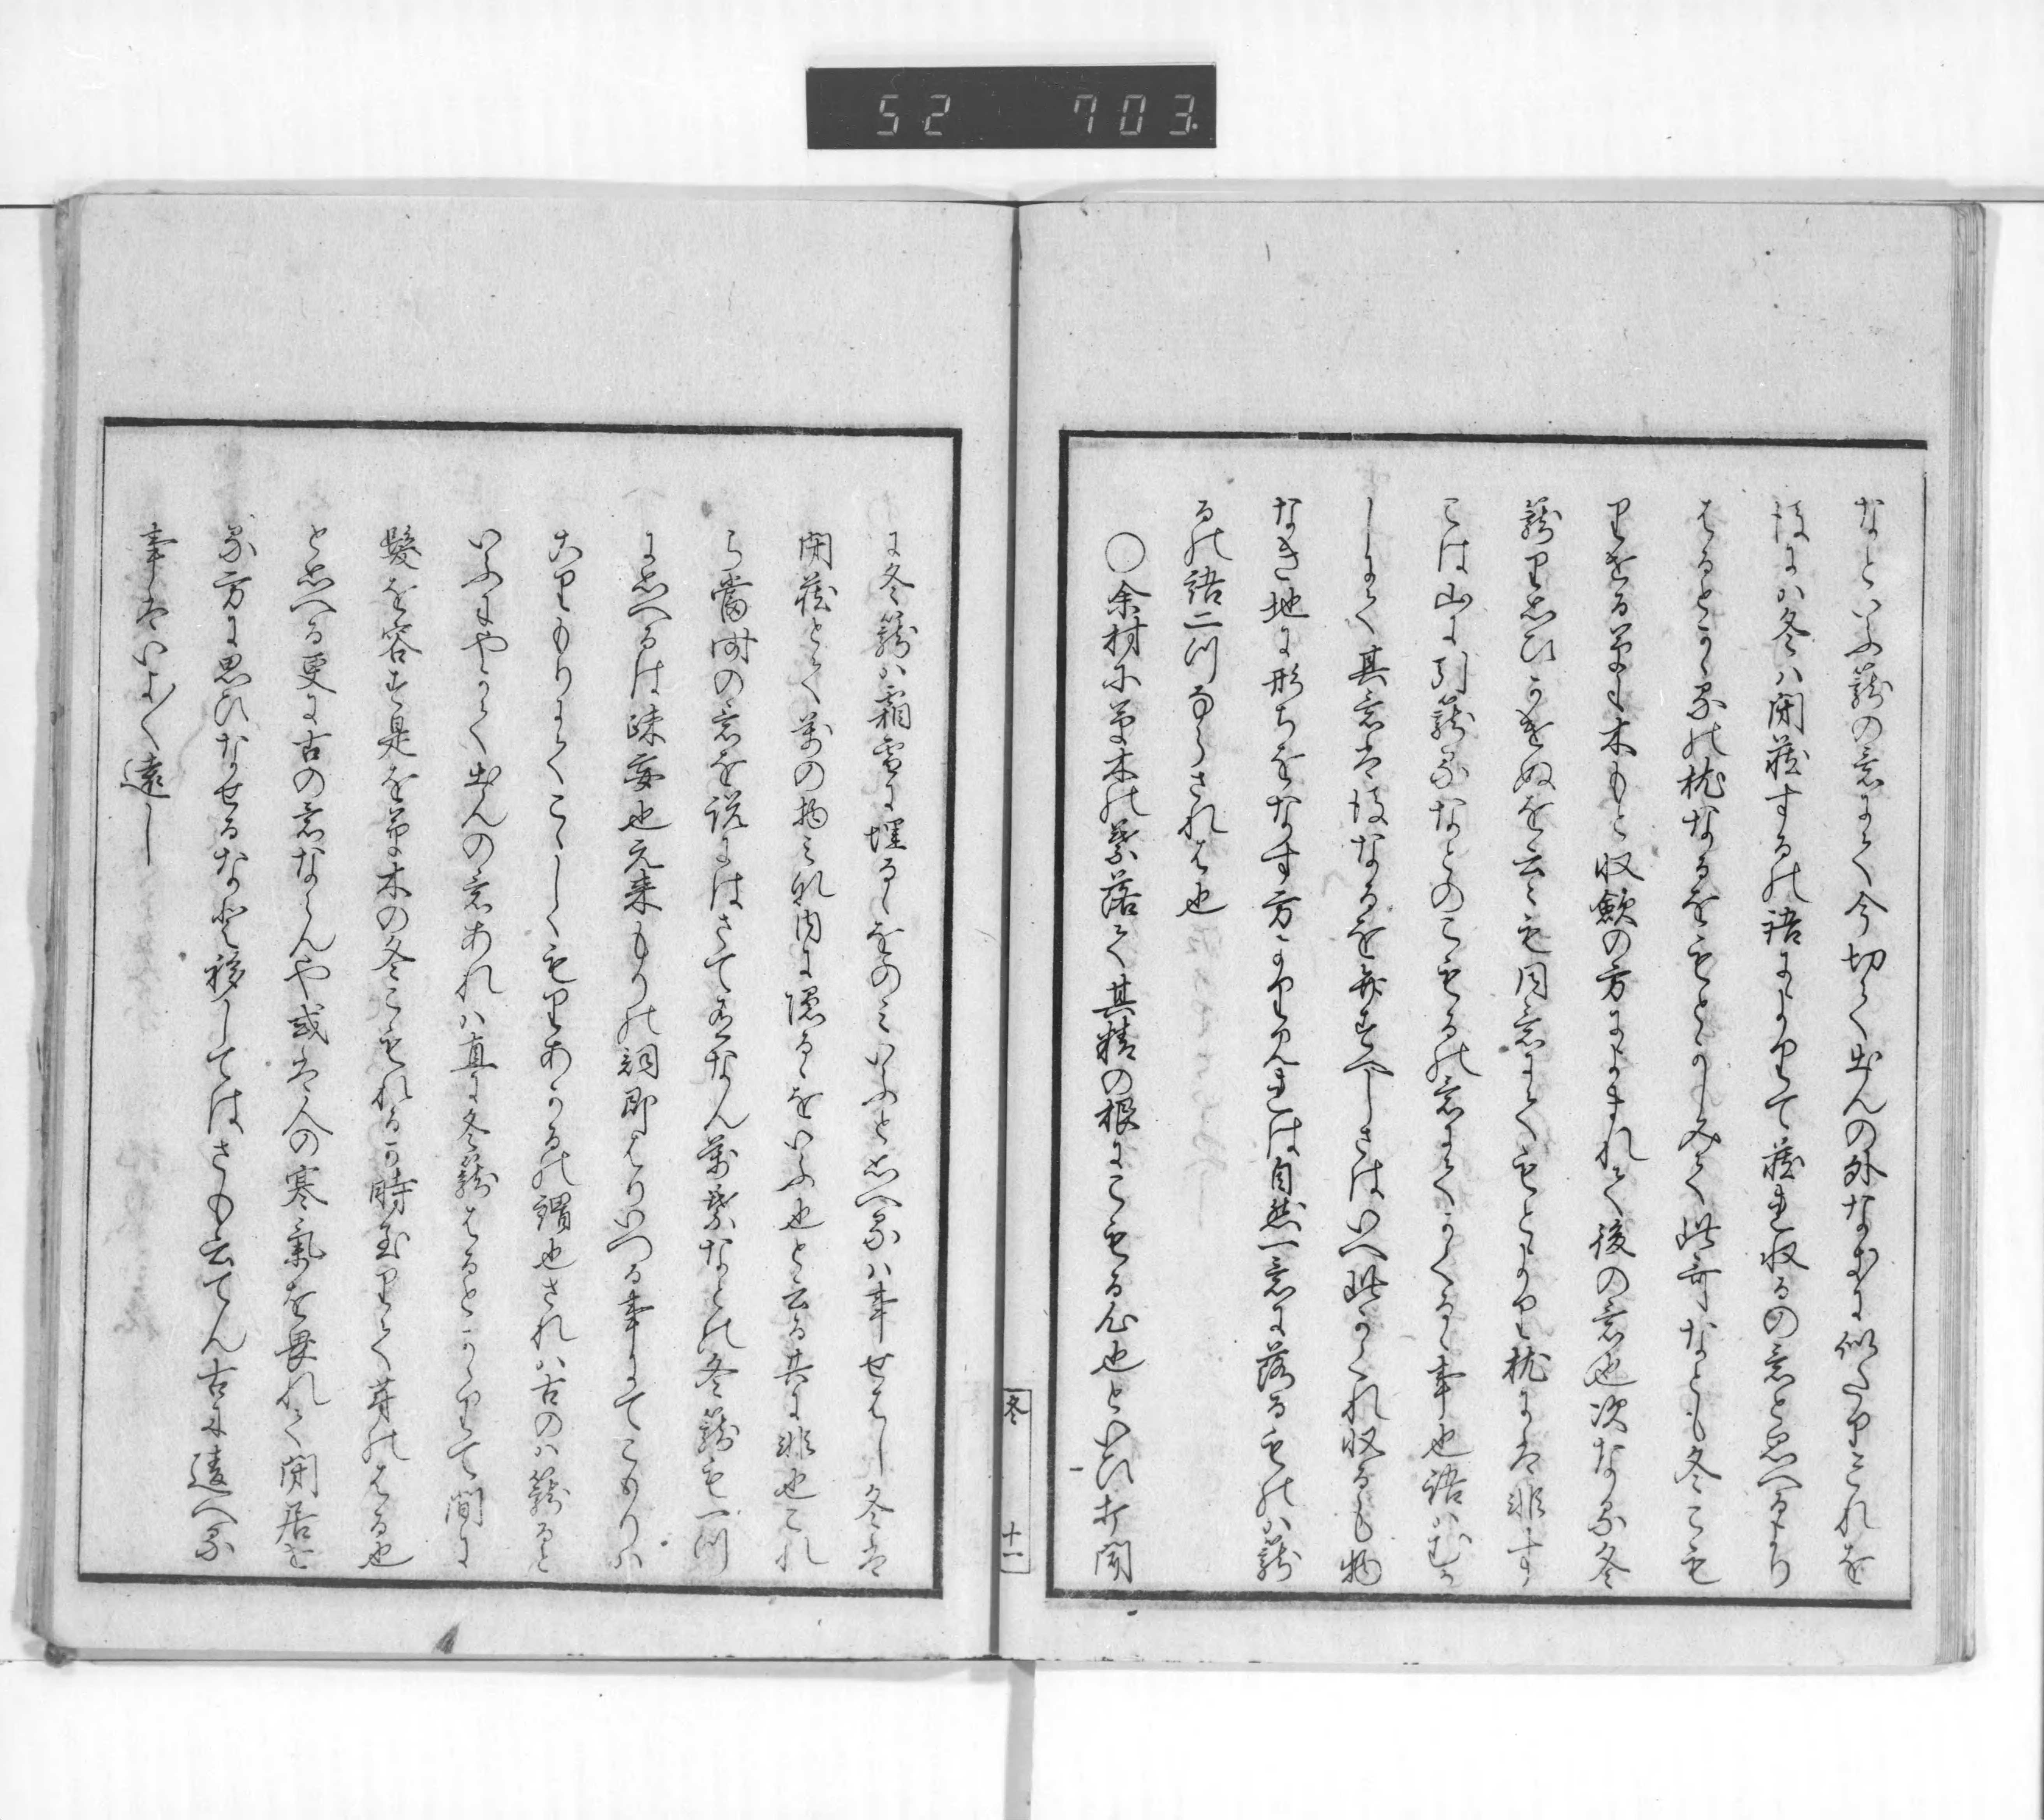 52 703.
なといふ籠の意にて今切て出んの外なるに似たりこれを
後にハ冬ハ閉蔵するの語によりて蔵め収るの意と思へるより
はるとかゝるの枕なるをもとかしみて此哥なとも冬こも
りせる草も木もと収斂の方によまれて後の意也次なる冬
籠り思ひかけぬを云々も同意にてもとより枕には非す
こは山に引籠るなとのこもるの意にてかくるゝ事也語はむか
しにて其意は後なるを弁すへしさはいへ此かくれ収るも物
なき地に形ちをなす方より見れは自然一意に落るもの籠
るの語二つならされは也
○余材に草木の葉落て其精の根にこもる心也といひ打聞
に冬籠ハ霜雪に埋るゝをのみいふと思へるハ事せはし冬は
閉蔵とて萬の物みな内に隠るゝをいふ也と云る共に非也これ
ら當時の意を説にはさても有なん萬葉なとの冬籠も一つ
に思へるは疎妄也元来もりの詞即はりいつる事にてこもりハ
木もりにてこゝしくもりあかるの謂也されハ古のハ籠ると
いふにやかて出んの意あれハ直に冬籠はるとかゝりて間に
髪を容す是を草木の冬こもれるか時至りて芽のはる也
と思へる更に古の意ならんや或は人の寒氣を畏れて閑居を
る方に思ひなせるなと移してはさも云てん古に違へる
事はいよ〱遠し
冬 十一